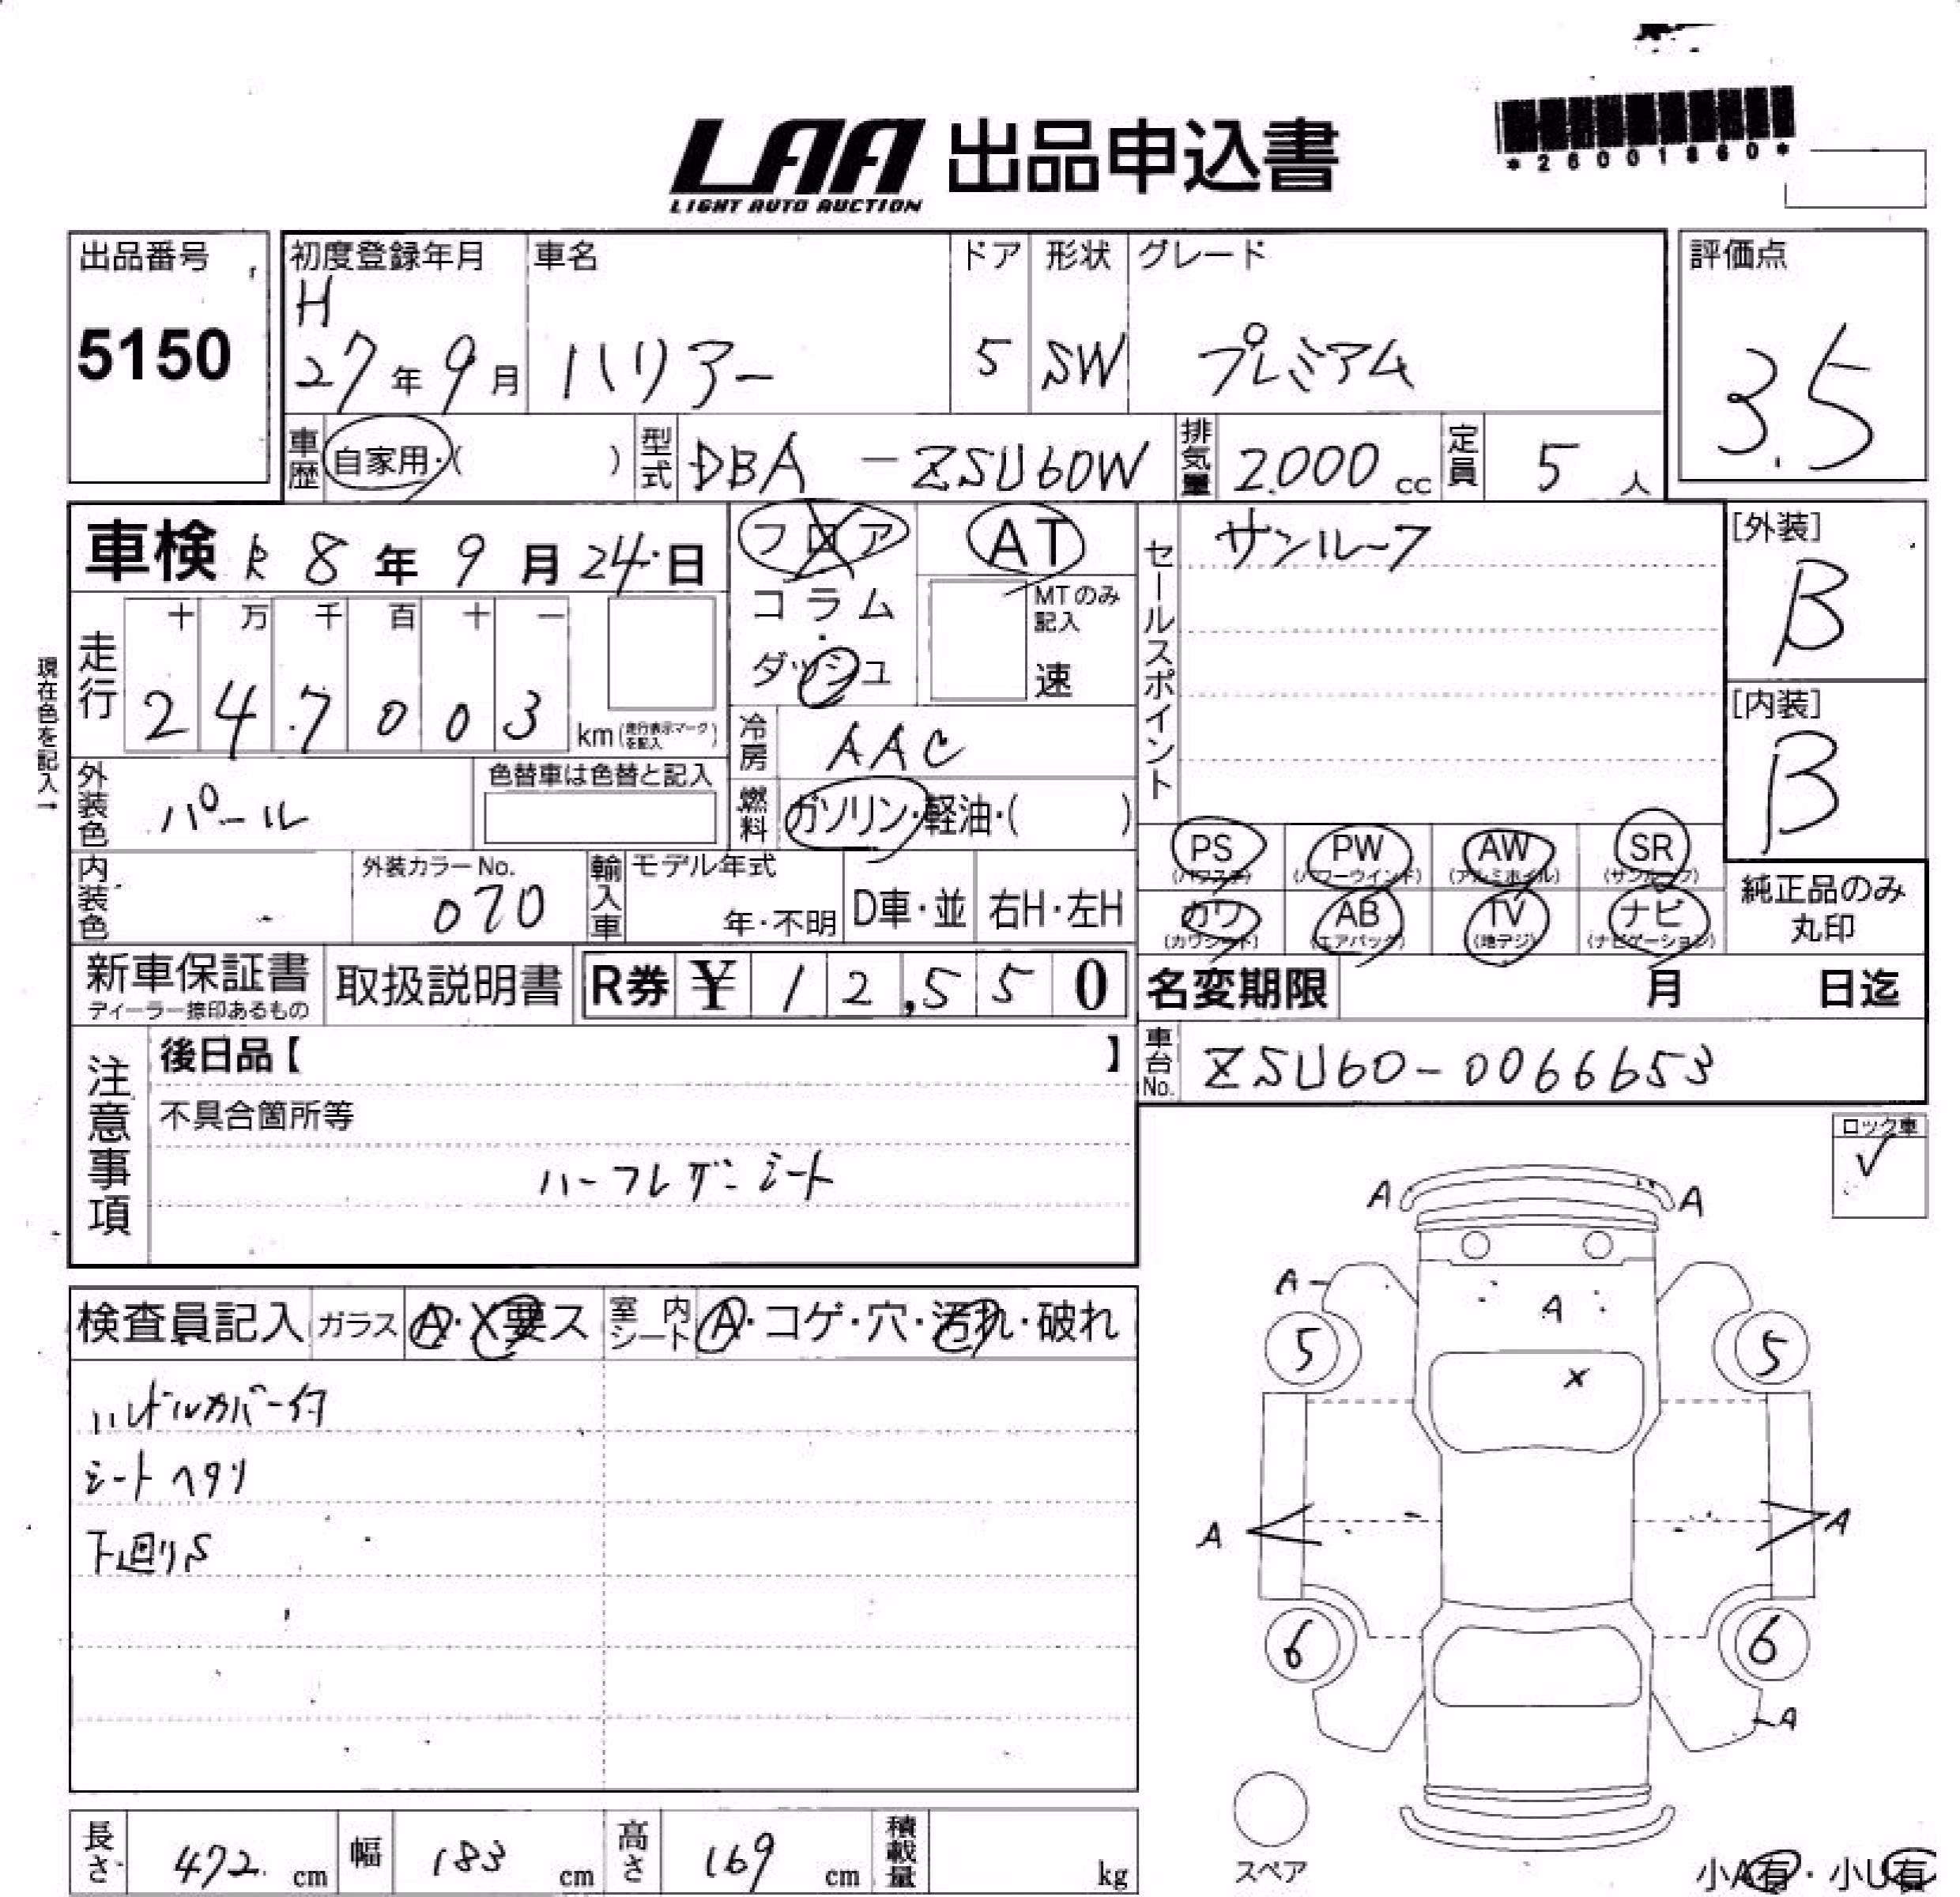 LAA 出品申込書
LIGHT AUTO AUCTION
*26001860*
出品番号
5150
初度登録年月 車名 ドア 形状 グレード
H
27年9月 ハリアー 5 SW プレミアム
評価点
3.5
車歴 自家用・( ) 型式 DBA-ZSU60W 排気量 2.000cc 定員 5人
車検 R8年9月24日
フロア
コラム
ダッシュ
AT
MTのみ記入
速
セールスポイント サンルーフ
[外装]
B
[内装]
B
現在色を記入→
走行
十 万 千 百 十 一
2 4.7 0 0 3 km(走行表示マークを記入)
冷房 AAC
外装色 パール 色替車は色替と記入
燃料 ガソリン・軽油・( )
PS PW AW SR
(パワステ) (パワーウインド) (アルミホイル) (サンルーフ)
カワ AB TV ナビ
(カワシート) (エアバック) (地デジ) (ナビゲーション)
純正品のみ
丸印
内装色 外装カラーNo. 070
輸入車 モデル年式 年・不明 D車・並 右H・左H
新車保証書 取扱説明書 R券 ¥ 12,550
ディーラー捺印あるもの
名変期限 月 日迄
車台No. ZSU60-0066653
注意事項
後日品【 】
不具合箇所等
ハーフレザーシート
ロック車
✓
検査員記入 ガラス A・X要ス 室内シート A・コゲ・穴・汚れ・破れ
ハンドルカバー付
シートヘタリ
下廻りS
A A
A A
5 5
X
A A
6 6
A
スペア
小A有・小U有
長さ 472 cm 幅 183 cm 高さ 169 cm 積載量 kg